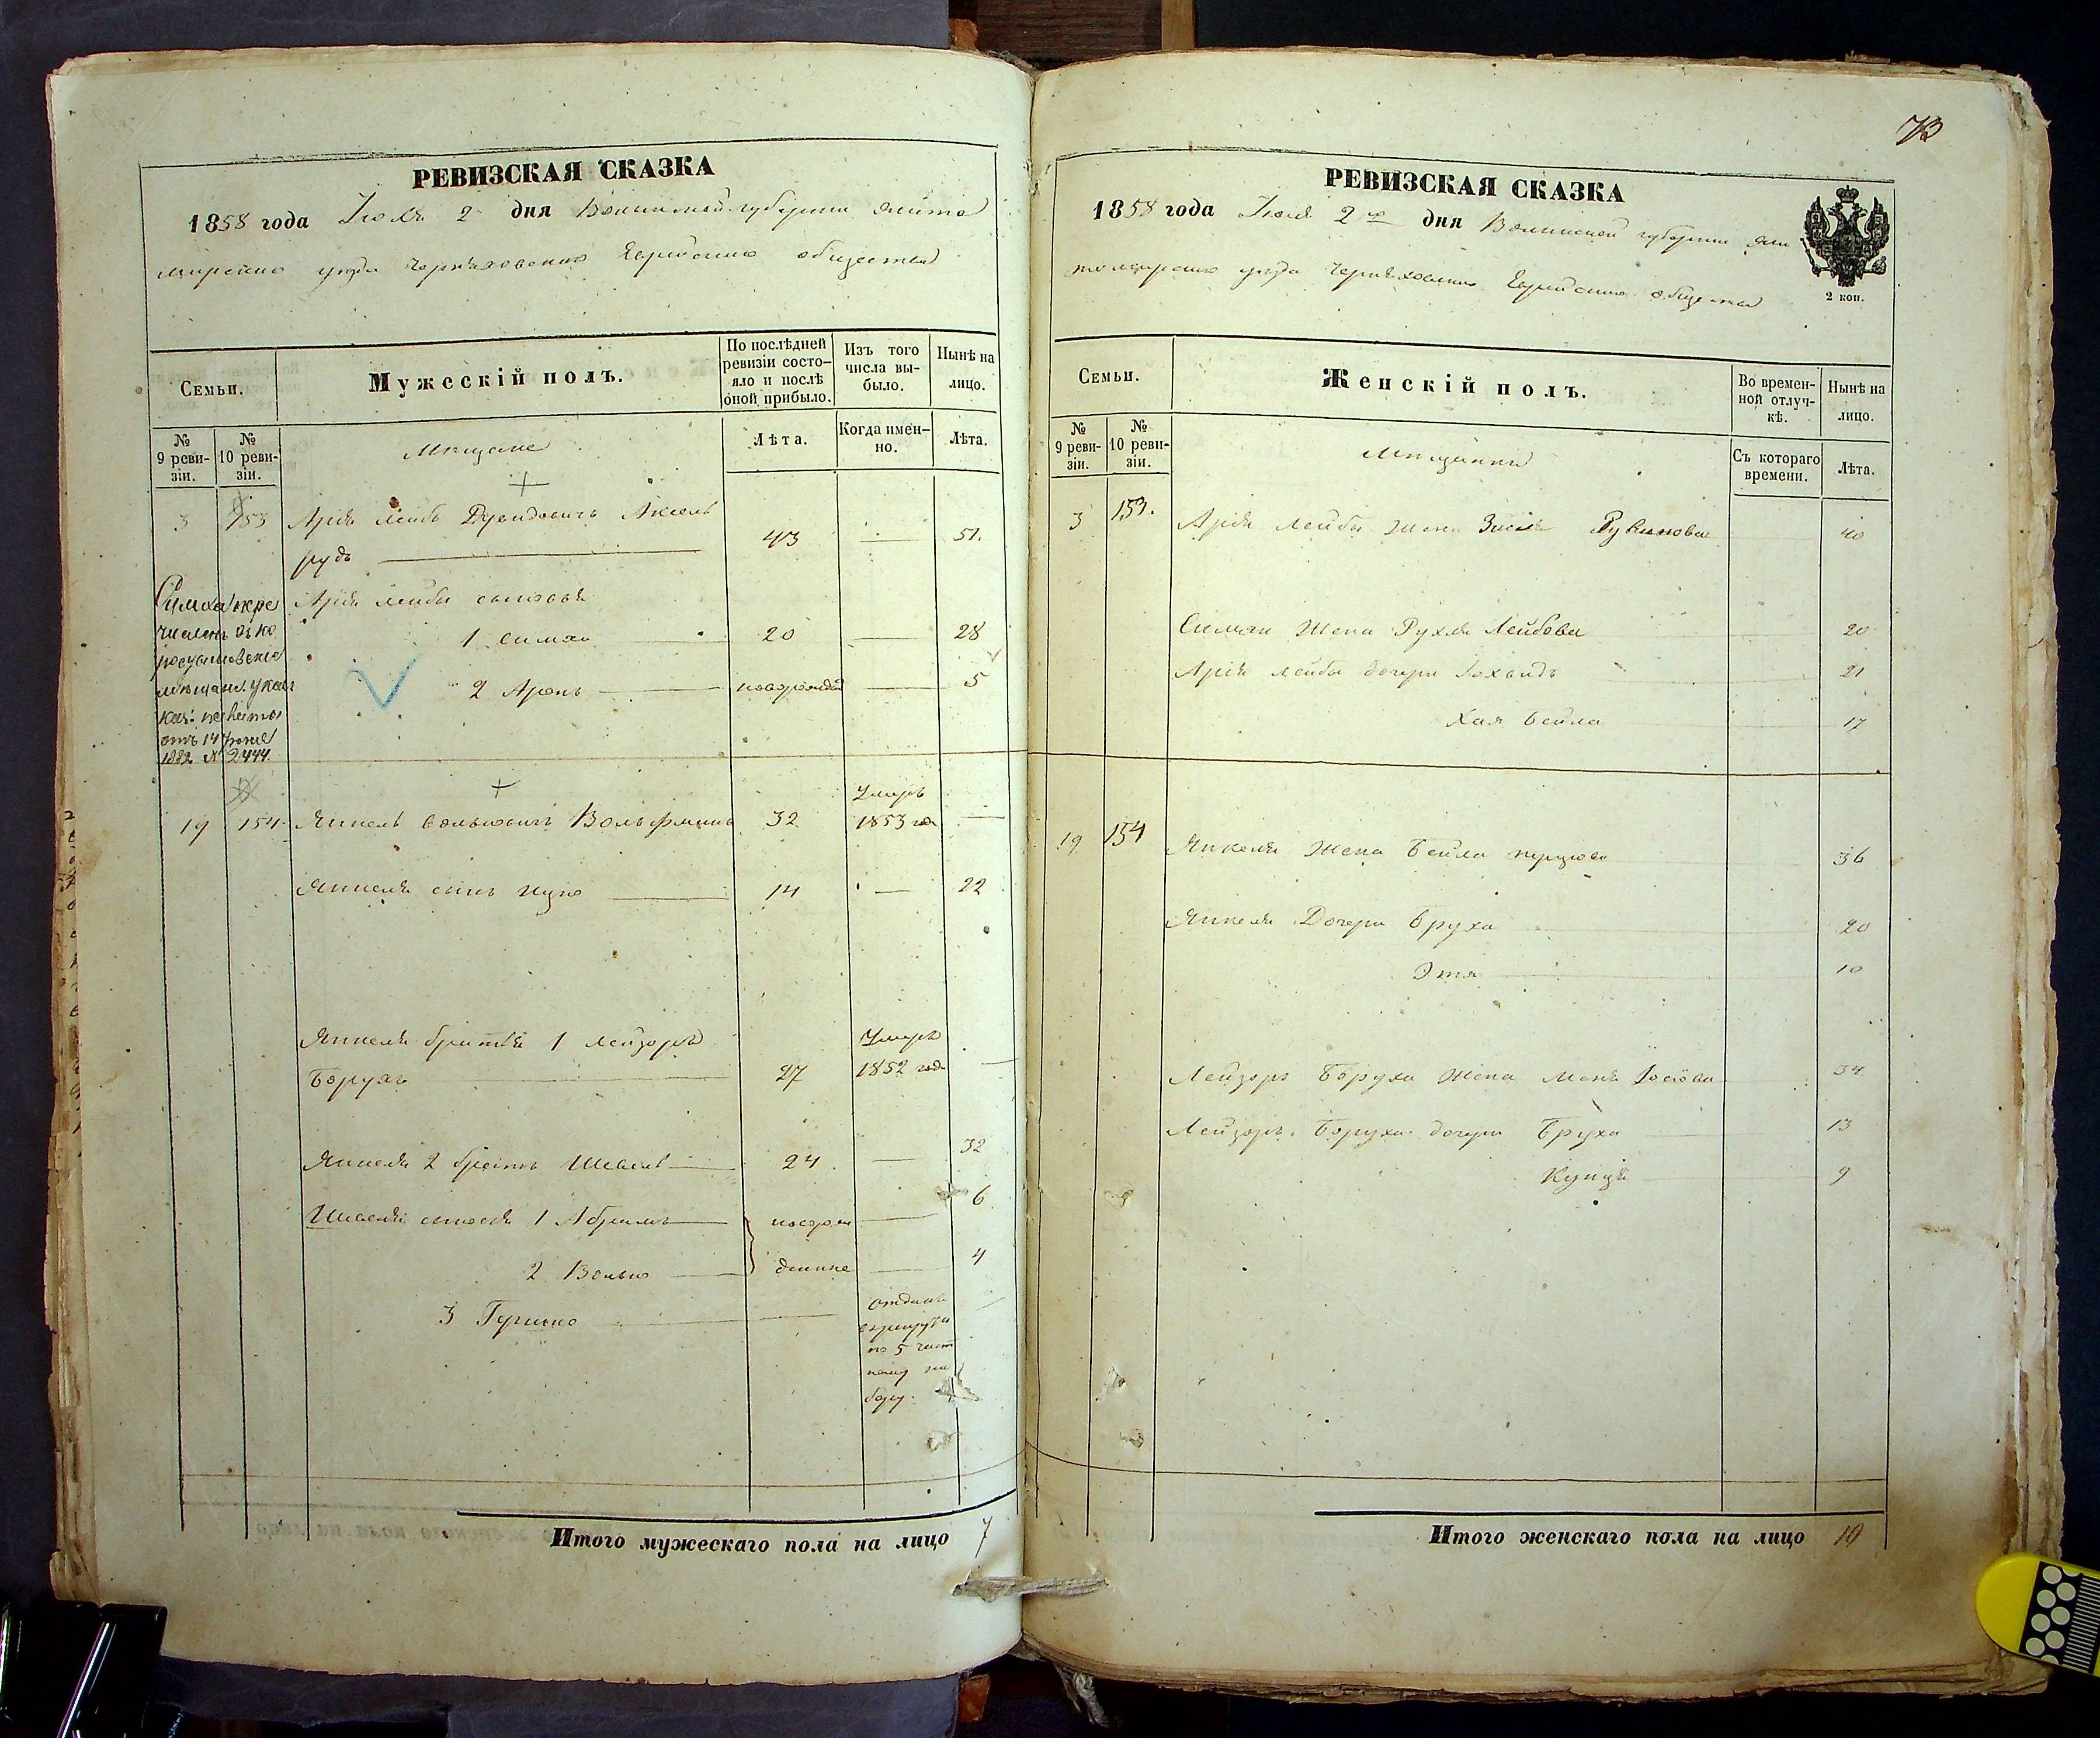 РЕВИЗСКАЯ СКАЗКА
1858 года Іюля 2 дня Волынской губерніи Жито
мирскаго уѣзда Черняховскаго Еврейскаго общества
Семьи.
Мужескій полъ.
По послѣдней ревизіи состояло и послѣ оной прибыло.
Изъ того числа выбыло.
Нынѣ на лицо.
№ 9 ревизіи.
№ 10 ревизіи.
Мѣщане
Лѣта.
Когда именно.
Лѣта.
3 153 Арія Лейбъ Дуви­довичъ Аксель
рудъ 43 — 51.
Симха пере
численъ
мѣщан. указ
каз: палаты
отъ 14
1882 № 2444.
Арія Лейбы сыновья
1 Симха 20 — 28
2 Аронъ новорожден — 5
Умеръ
19 154 Янкель Вольковичъ Вольфманъ 32 1853 года —
Янкеля сынъ Ицко 14 — 22
Янкеля братья 1 Лейзоръ
Умеръ
Борухъ 27 1852 года —
Янкеля 2 братъ Шевель 24 — 32
Шевеля сыновья 1 Абрамъ новорож — 6
2 Волько денные — 4
3 Гершко — отданъ
въ рекруты
по 5 част
ному на
бору.
Итого мужескаго пола на лицо 7
73
РЕВИЗСКАЯ СКАЗКА
1858 года Іюля 2го дня Волынской губерніи Жи
томирскаго уѣзда Черняховскаго Еврейскаго общества
2 коп.
Семьи.
Женскій полъ.
Во временной отлучкѣ.
Нынѣ на лицо.
№ 9 ревизіи.
№ 10 ревизіи.
Мѣщанки
Съ котораго времени.
Лѣта.
3 153. Арія Лейбы жена Зисля Рувинова 40
Симхи жена Рухля Лейбова 20
Арія Лейбы дочери Іохвидъ 21
Хая Бейла 17
19 154 Янкеля жена Бейла 36
Янкеля Дочери Бруха 20
Этя 10
Лейзоръ Боруха жена Маня Іосіова 34
Лейзоръ Боруха дочери Бруха 13
9
Итого женскаго пола на лицо 10